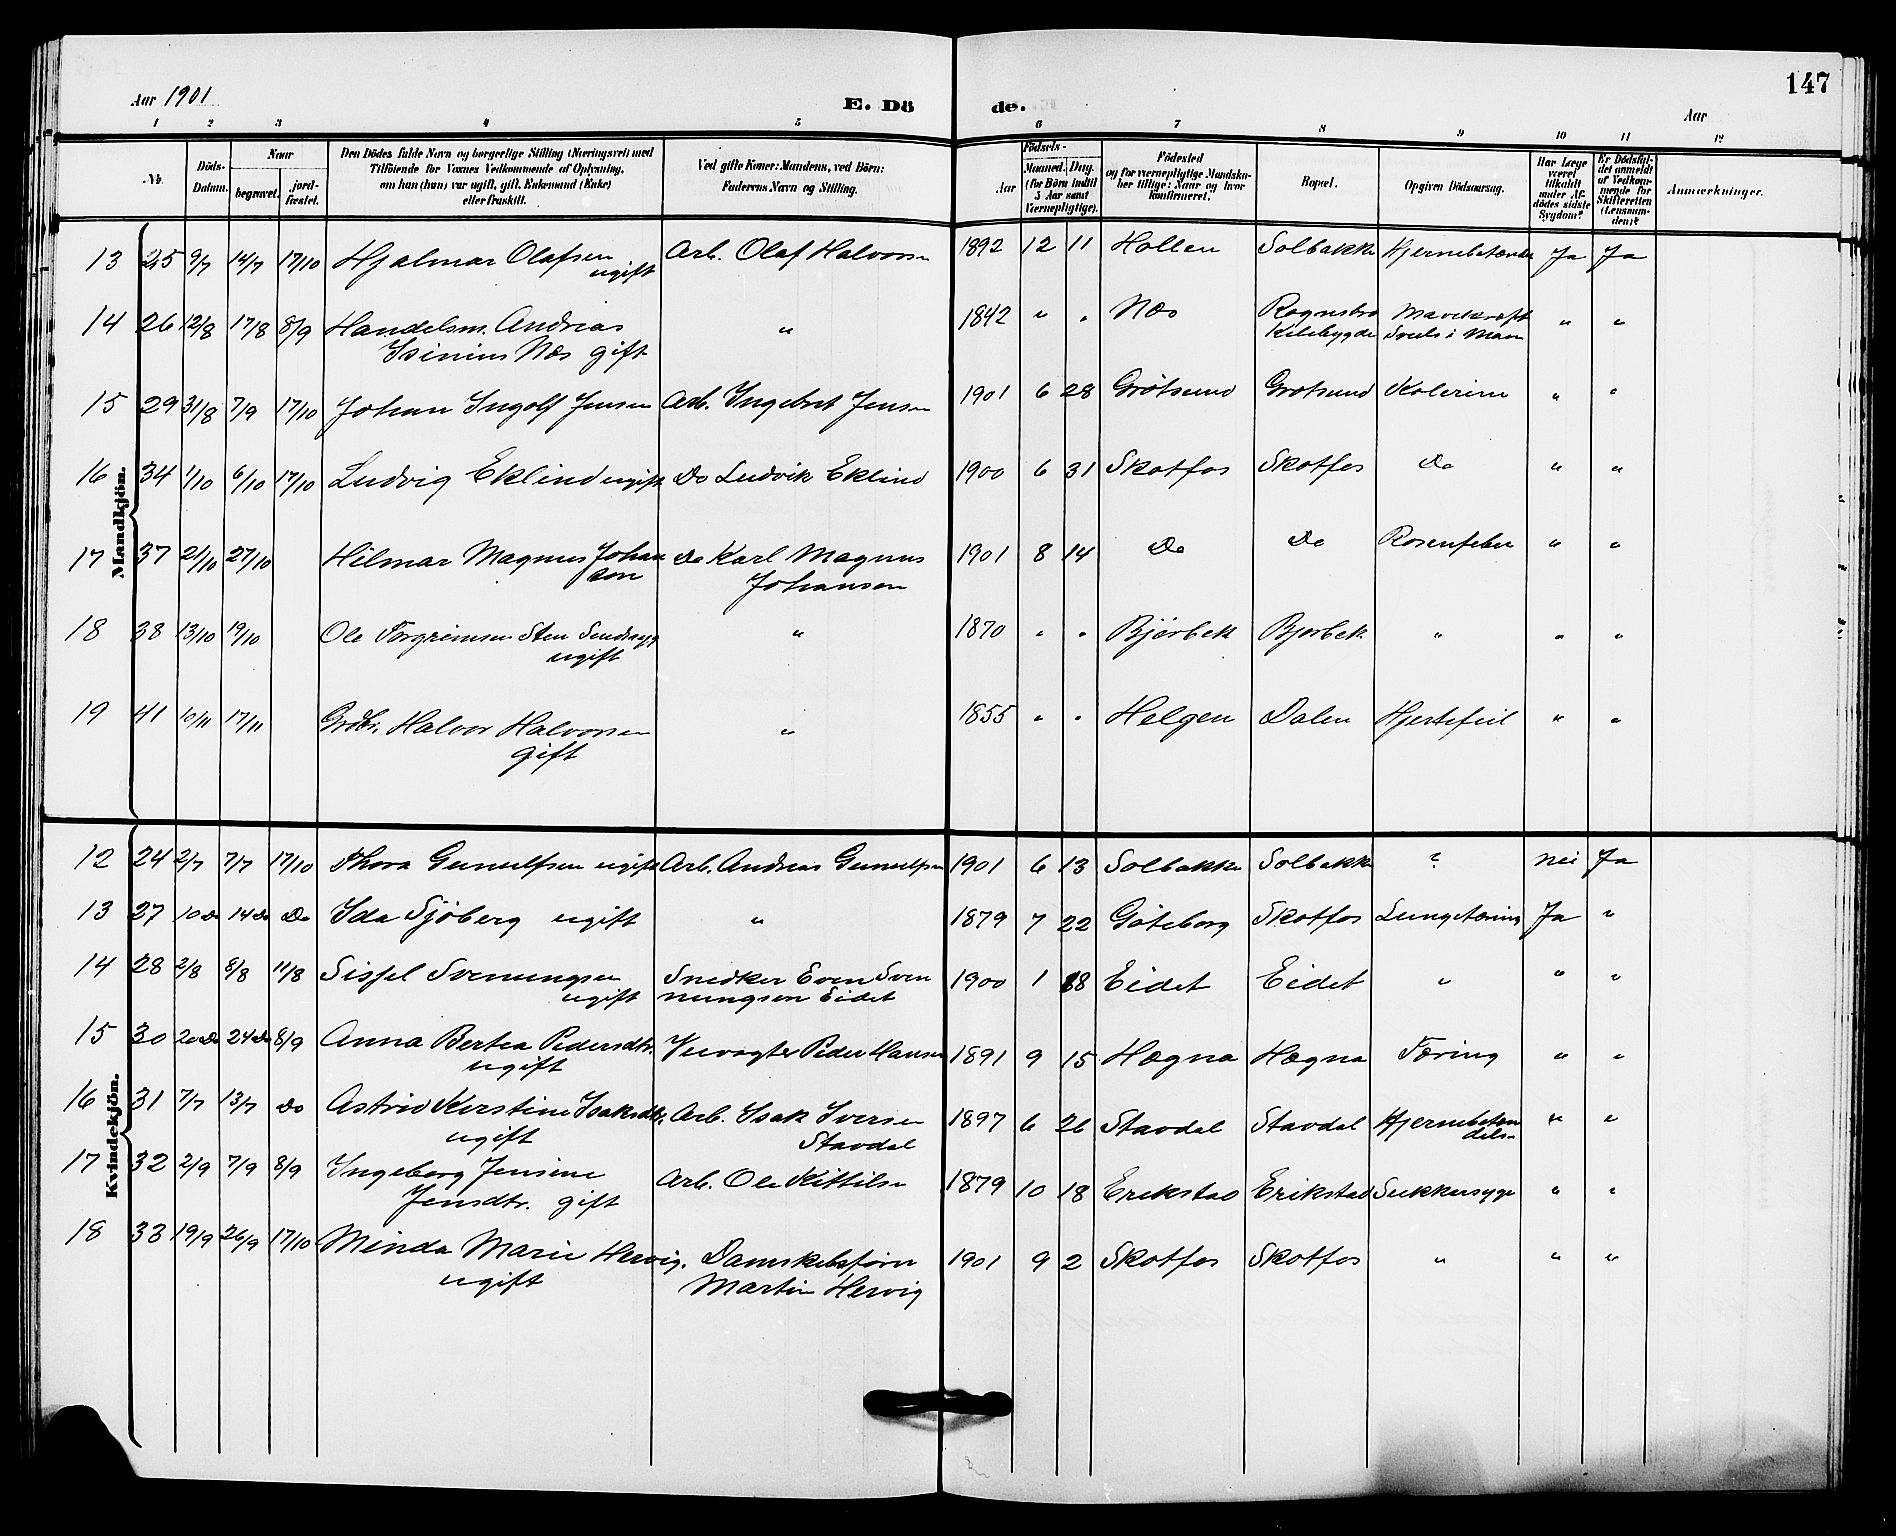 147
Aar 1901 E. Dö de. Aar
1 2 3 4 5 6 7 8 9 10 11 12
No. Döds-Datum. Naar begravet. jord-fæstet. Den Dödes fulde Navn og borgerlige Stilling (Næringsvei) med Tilföiende for Voxnes Vedkommende af Oplysning, om han (hun) var ugift, gift, Enkemand (Enke) eller fraskilt. Ved gifte Koner: Mandens, ved Börn: Faderens Navn og Stilling. Födsels- Aar Maaned. Dag. (for Börn indtil 5 Aar samt Værnepligtige). Födested og for værnepligtige Mandskaber tillige: Naar og hvor konfirmeret. Bopæl. Opgiven Dödsaarsag. Har Læge været tilkaldt under Afdödes sidste Sygdom? Er Dödsfaldet anmeldt af Vedkommende for Skifteretten (Lensmanden)? Anmærkninger.
Mandkjön.
13 25 9/7 14/7 17/10 Hjalmar Olafsen Arb. Olaf Halvorsen 1892 12 11 Hollen Solbakke Hjernebetændelse Ja Ja
ugift
14 26 12/8 17/8 8/9 Handelsm. Andreas " 1842 " " Næs Rognsbro Mavekræft " "
Isinius Næs gift Kilebygde Svuls i Maven
15 29 31/8 7/9 17/10 Johan Ingolf Jensen Arb. Ingebret Jensen 1901 6 28 Grötsund Grotsund Kolerine " "
16 34 1/10 6/10 17/10 Ludvig Eklind ugift Do Ludvik Eklind 1900 6 31 Skotfos Skotfos Do " "
17 37 21/10 27/10 Hilmar Magnus Johan Do Karl Magnus 1901 8 14 Do Do Rosenfeber " "
sen Johansen
18 38 13/10 19/10 Ole Torgrimsen Sten " 1870 " " Bjérbek Bjerbek " " "
ugift
19 41 10/11 17/11 Grdbr. Halvor Halvorsen " 1855 " " Helgen Dalen Hjertefeil " "
gift
Kvindekjön.
12 24 2/7 7/7 17/10 Thora Gunulfsen ugift Arb. Andreas Gunulfsen 1901 6 13 Solbakke Solbakke ? nei Ja
13 27 10 Do 14 Do Do Ida Sjöberg ugift " 1879 7 22 Göteborg Skotfos Lungetæring Ja "
14 28 2/8 8/8 11/8 Sissel Svenungsen Snedker Even Sven 1900 1 18 Eidet Eidet " " "
ugift nungsen Eidet
15 30 20 Do 24 Do 8/9 Anna Bertea Pedersdtr. Veivogter Peder Hansen 1891 9 15 Hægna Hægna Tæring " "
ugift
16 31 7/7 13/7 Do Astrid Kirstine Isaksdtr. Arb. Isak Iversen 1897 6 26 Stavdal Stavdal Hjernebetæn " "
ugift Stavdal delse
17 32 2/9 7/9 8/9 Ingeborg Jensine Arb. Ole Kittilsen 1879 10 18 Erikstad Erikstad Sukkersyge " "
Jensdtr. gift
18 33 19/9 26/9 17/10 Minda Marie Hervig. Damskibsförer 1901 9 2 Skotfos Skotfos " " "
ugift Martin Hervig